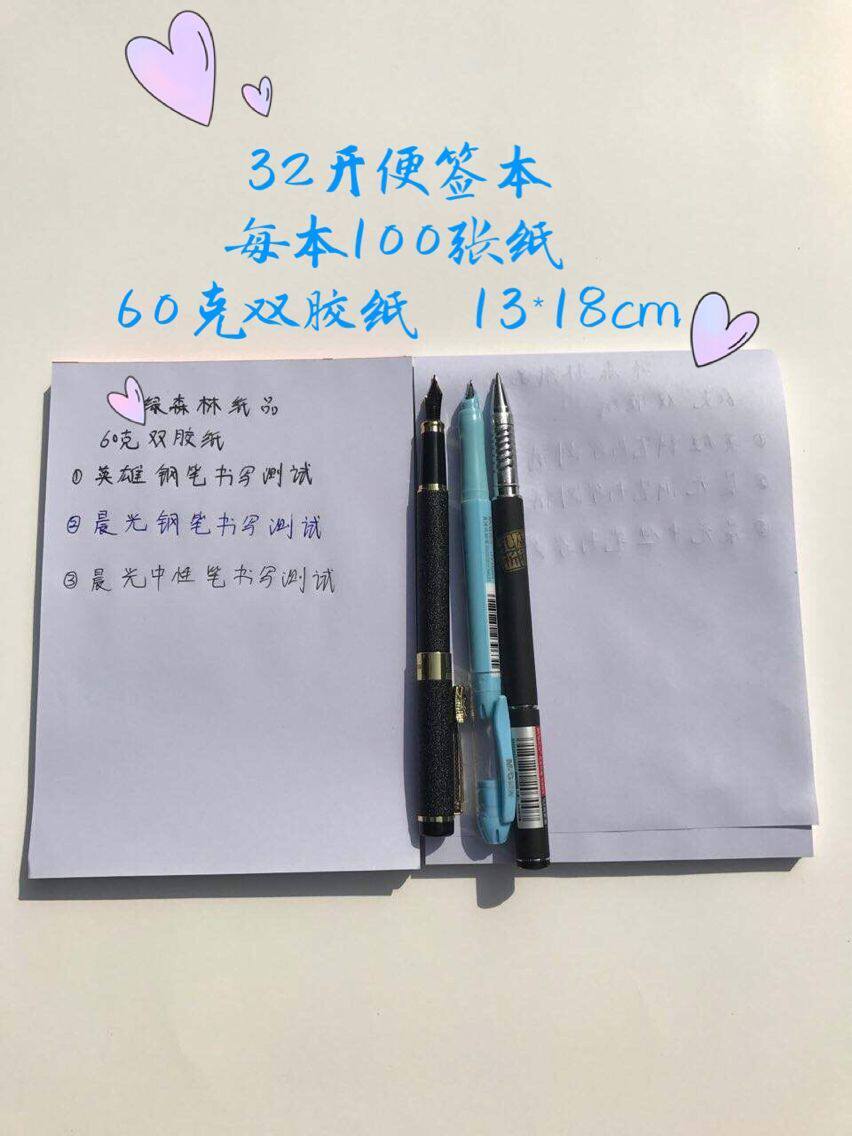 32开便签本
每本100张纸
60克双胶纸 13*18cm
绿森林纸品
60克双胶纸
①英雄钢笔书写测试
②晨光钢笔书写测试
③晨光中性笔书写测试